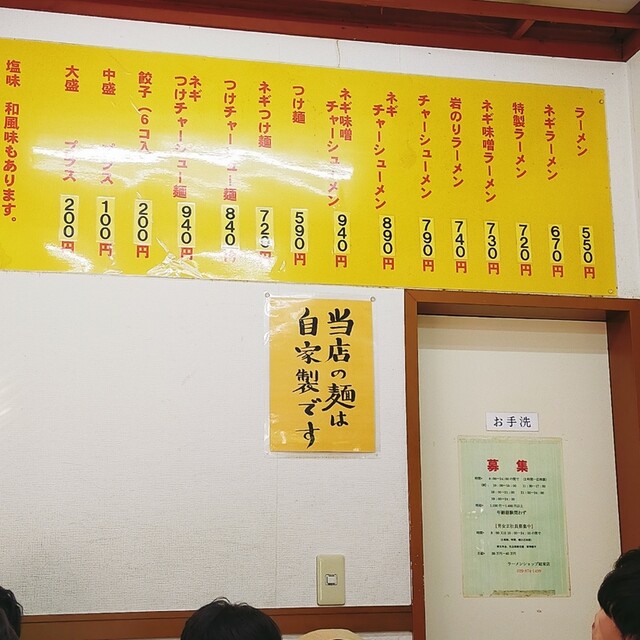 ラーメン 550円
ネギラーメン 670円
特製ラーメン 720円
ネギ味噌ラーメン 730円
岩のりラーメン 740円
チャーシューメン 790円
ネギチャーシューメン 890円
ネギ味噌チャーシューメン 940円
つけ麺 590円
ネギつけ麺 720円
つけチャーシュー麺 840円
ネギつけチャーシュー麺 940円
餃子(6コ入) 200円
中盛 プラス 100円
大盛 プラス 200円
塩味 和風味もあります。
当店の麺は
自家製です
お手洗
募集